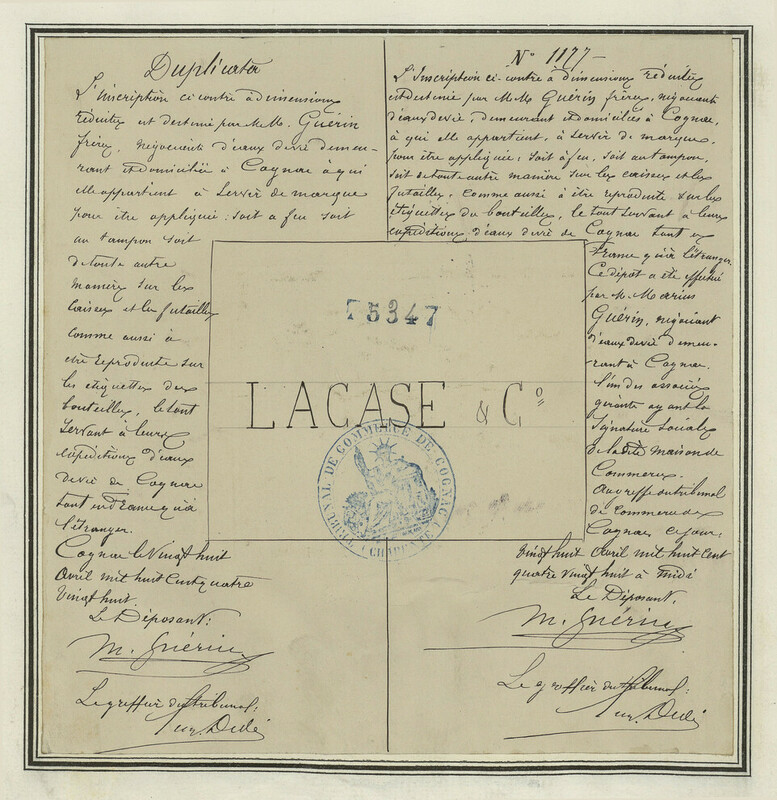 Duplicata
L'Inscription ci contre à dimensions
réduites est destinée par M.M. Guérin
frères, négociants d'eaux de vie demeu-
rant et domiciliés à Cognac à qui
elle appartient à servir de marque
pour être appliquée: soit à feu soit
au tampon soit
de toute autre
manière sur les
caisses et les futailles
comme aussi à
être reproduite sur
les étiquettes des
bouteilles, le tout
servant à leurs
expéditions d'eaux
de vie de Cognac
tant en France qu'à
l'étranger.
Cognac le vingt huit
Avril mil huit cent quatre
vingt huit.
Le Déposant:
M. Guérin
Le greffier du tribunal:
N° 1177
L'Inscription ci-contre à dimensions réduites
est destinée par M.M. Guérin frères, négociants
d'eaux de vie, demeurant et domiciliés à Cognac,
à qui elle appartient, à servir de marque,
pour être appliquée: soit à feu, soit au tampon,
soit de toute autre manière sur les caisses et les
futailles, comme aussi à être reproduite sur les
étiquettes des bouteilles, le tout servant à leurs
expéditions d'eaux de vie de Cognac tant en
France qu'à l'étranger.
Ce dépôt a été effectué
par M. Marius
Guérin, négociant
d'eaux de vie demeu-
rant à Cognac.
l'un des associés
gérants ayant la
signature sociale
de la dite maison de
Commerce.
Au greffe du tribunal
de commerce de
Cognac ce jour:
vingt huit Avril mil huit cent
quatre vingt huit à midi
Le Déposant.
M. Guérin
Le greffier du tribunal:
75347
LACASE & Cº
TRIBUNAL DE COMMERCE DE COGNAC
(CHARENTE)